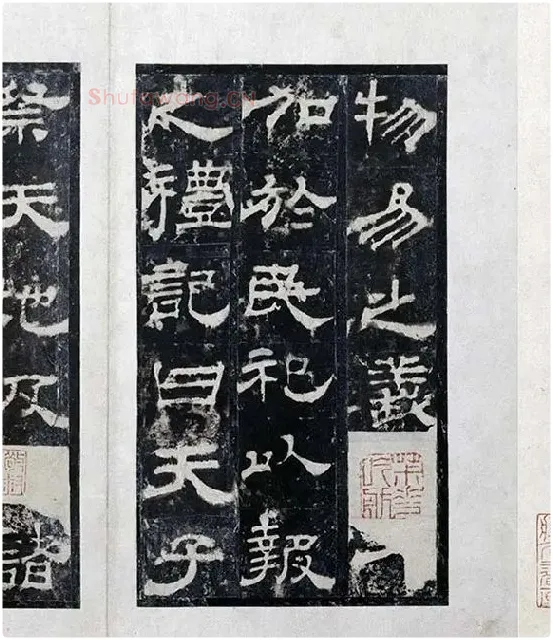 Shufawang.CN
物易之義
加於民祀以報
之禮記曰天子
祭天地及
諸